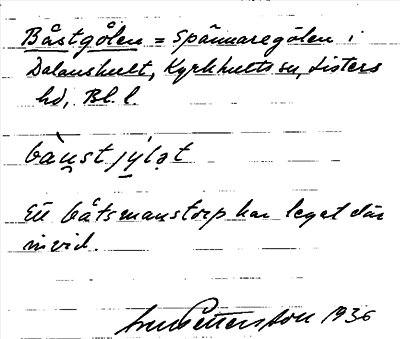 Båstgölen = Spännaregölen i
Dalanshult, Kyrkhults sn, Listers
hd, Bl. l.
bàu̯st jy̱lǝt
Ett båtsmanstorp har legat där
invid.
Pettersson 1936